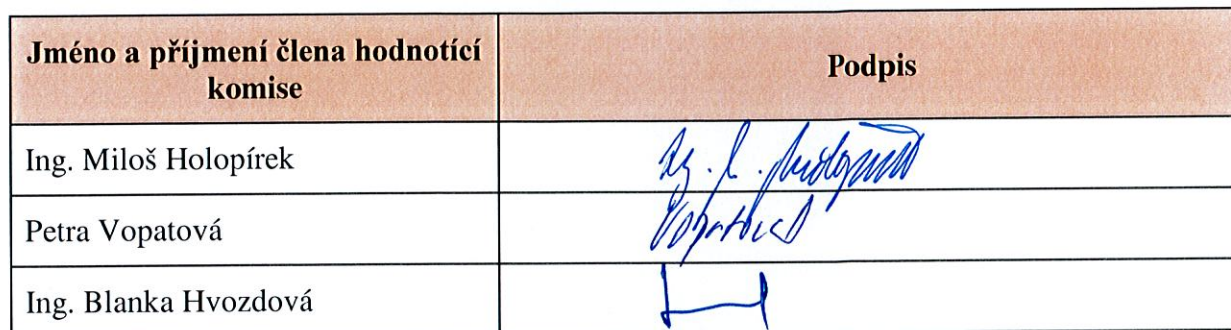 Jméno a příjmení člena hodnotící
komise
Podpis
Ing. Miloš Holopírek
Ing. M. Holopírek
Petra Vopatová
Vopatová
Ing. Blanka Hvozdová